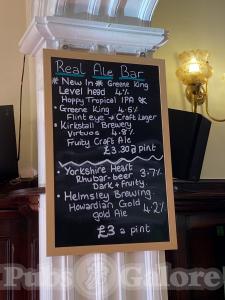 Real Ale Bar
* New In * Greene King
Level head 4%
Hoppy Tropical IPA
• Greene King 4.5%
Flint eye Craft Lager
• Kirkstall Brewery
Virtuos 4.8%
Fruity Craft Ale
£3.30 a pint
• Yorkshire Heart
Rhubar-beer 3.7%
Dark + fruity
• Helmsley Brewing
Howardian Gold 4.2%
gold Ale
£3 a pint
Pubs Galore